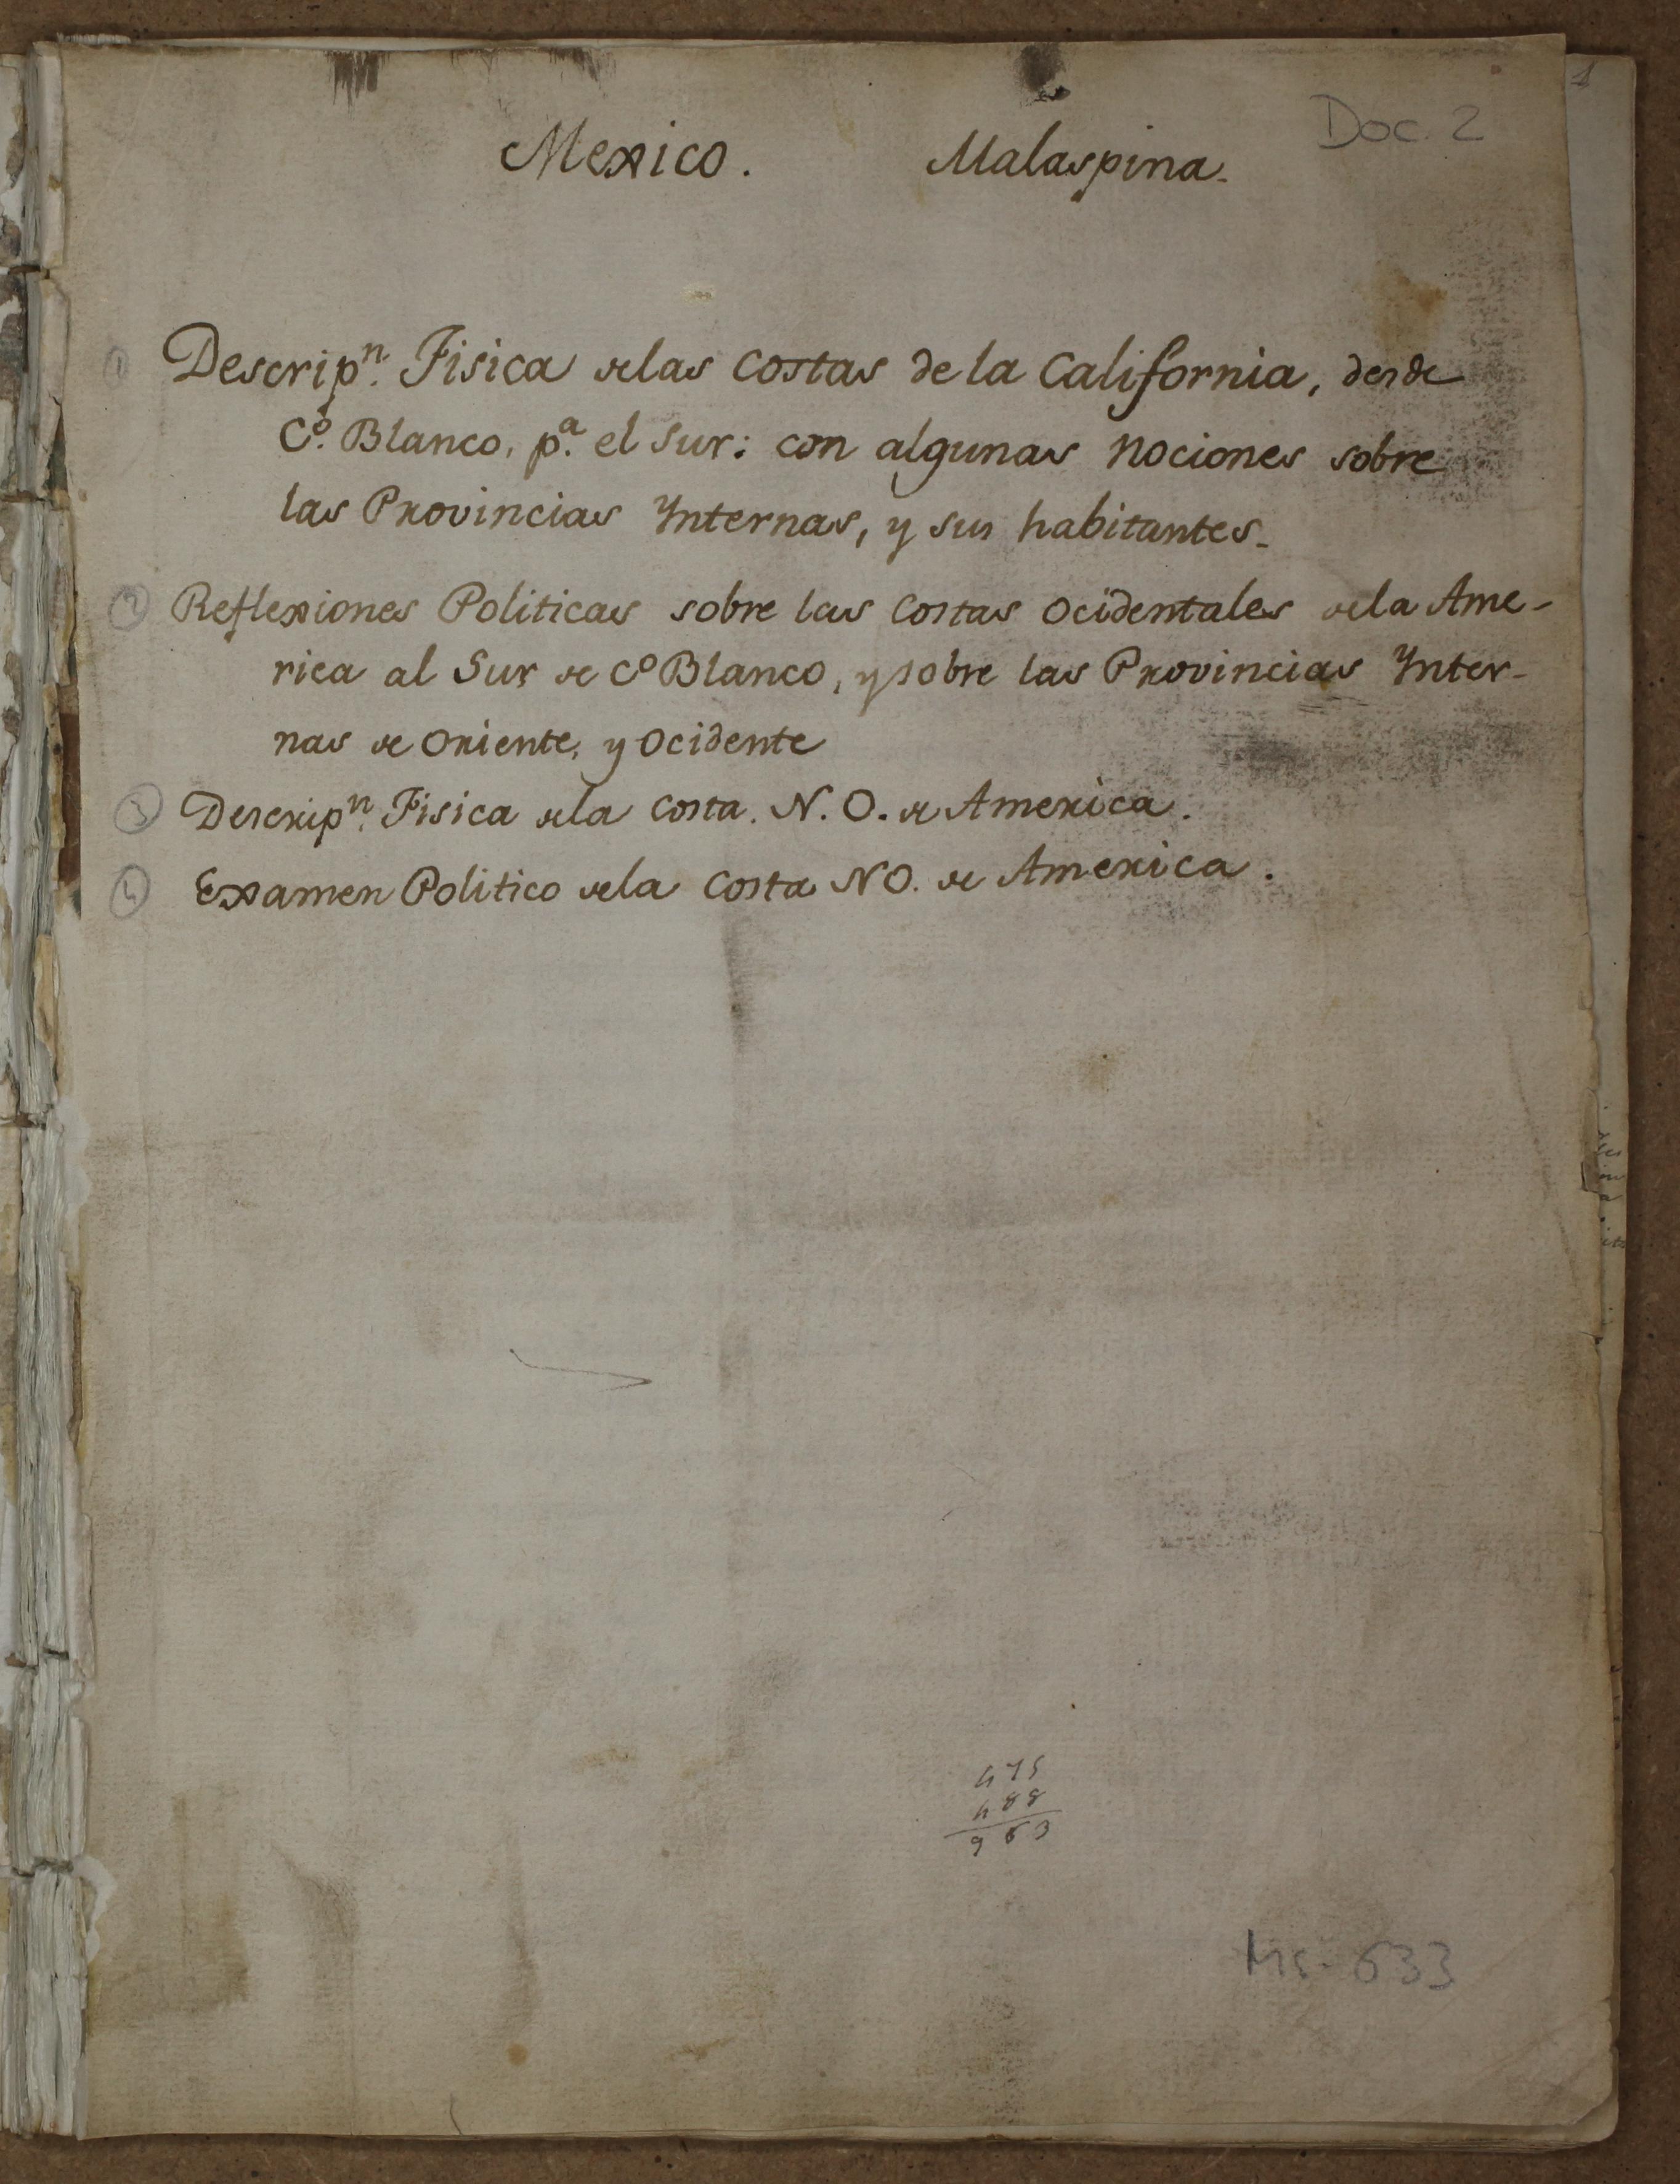 1
Doc. 2
Mexico. Malaspina.
1 Descripn. Fisica delas Costas de la California, desde
Co. Blanco, pa. el Sur: con algunas Nociones sobre
las Provincias Ynternas, y sus habitantes.
2 Reflexiones Politicas sobre las Costas Ocidentales dela Ame-
rica al Sur de Co Blanco, y sobre las Provincias Ynter-
nas de Oriente, y Ocidente
3 Descripn. Fisica dela Costa. N. O. de America.
4 Examen Politico dela Costa NO. de America.
475
488
963
Ms. 633